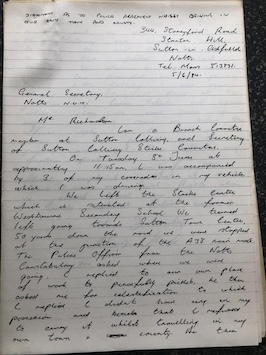 STATEMENT AS TO POLICE HARASSMENT WHILST DRIVING IN
OUR OWN TOWN AND COUNTY.
344, Stoneyford Road
Stanton Hill,
Sutton-in-Ashfield
Notts
Tel. Mans 513731.
5/6/84.
General Secretary,
Notts N.U.M.
Mr Richardson
I am a Branch Committee
member at Sutton Colliery, and Secretary
of Sutton Colliery Strike Committee.
On Tuesday, 5th June at
approximately 11.15am, I was accompanied
by 3 of my comrades in my vehicle
which I was driving.
We left the Strike Centre
which is situated at the former
Westbourne Secondary School. We turned
left going towards Sutton Town Centre,
50 yards down the road we were stopped
at the junction of the A38 main road.
The Police Officer from the Notts
Constabulary asked where we were
going. I replied to our own place
of work to peacefully picket, he then
asked me for identification to which
I replied I didn't have any in my
possession and hereto that I refused
to carry it whilst travelling in my
own town & county. He then